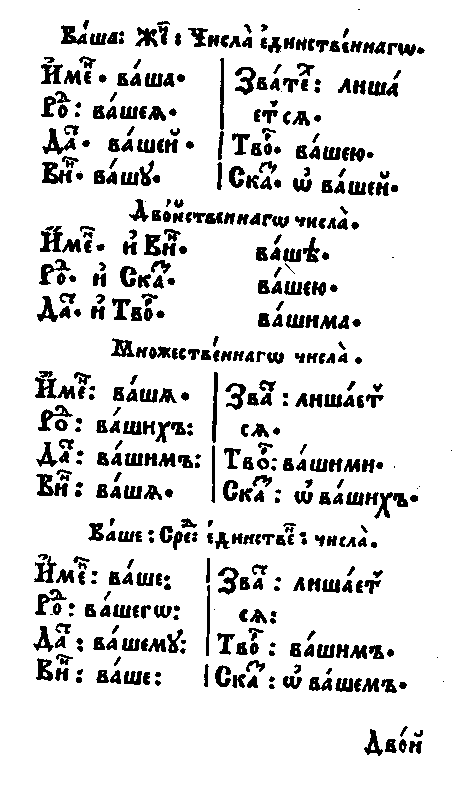 Ва́ша: Же́н: Числа̀ є҆ди́нственнагѡ.
И҆́менⷩ҇. ва́ша. Зва́телⷧ҇: лиша́
Роⷣ: ва́шеѧ. етⷭ҇сѧ.
Даⷮ. ва́шей. Твоⷬ. ва́шею.
Виⷩ. ва́шꙋ. Скаⷥ. ѡ҆ ва́шей.
Дво́йственнагѡ числа̀.
И҆́меⷩ. и҆ Виⷩ. ва́шѣ.
Роⷣ. и҆ Скаⷥ. ва́шею.
Даⷮ. и҆ Твоⷬ. ва́шима.
Мно́жественнагѡ числа̀.
И҆́меⷩ: ва́шѧ. Зваⷮ: лиша́етⷭ҇
Роⷣ: ва́шихъ: сѧ.
Даⷮ: ва́шимъ: Твоⷬ: ва́шими.
Виⷩ: ва́шѧ. Скаⷥ: ѡ҆ ва́шихъ.
Ва́ше: Среⷣ: є҆ди́нствеⷩ: числа̀.
И҆́меⷩ: ва́ше: Зваⷮ: лиша́етⷭ҇
Роⷣ: ва́шегѡ: сѧ:
Даⷮ: ва́шемꙋ: Твоⷬ: ва́шимъ.
Виⷩ: ва́ше: Скаⷥ: ѡ҆ ва́шемъ.
Дво́й